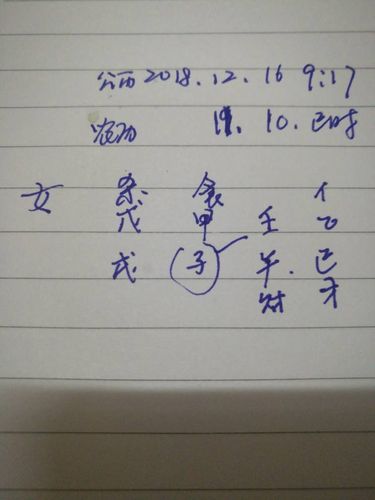 公历 2018. 12. 16 9:17
农历 11. 10. 巳时
女 杀 食 亻
戊 甲 壬 乙
戌 子 午. 巳
财 才